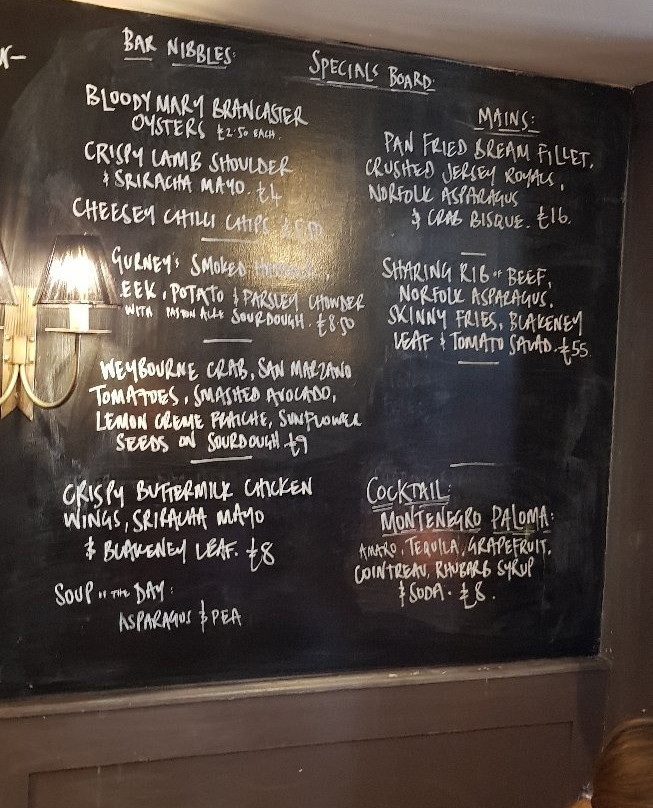 BAR NIBBLES:
BLOODY MARY BRANCASTER
OYSTERS £2.50 EACH.
CRISPY LAMB SHOULDER
& SRIRACHA MAYO. £4
CHEESEY CHILLI CHIPS
GURNEY'S SMOKED
LEEK, POTATO & PARSLEY CHOWDER
WITH PASTON ALE SOURDOUGH. £8.50
WEYBOURNE CRAB, SAN MARZANO
TOMATOES, SMASHED AVOCADO,
LEMON CREME FRAICHE, SUNFLOWER
SEEDS ON SOURDOUGH £9
CRISPY BUTTERMILK CHICKEN
WINGS, SRIRACHA MAYO
& BLAKENEY LEAF. £8
SOUP OF THE DAY:
ASPARAGUS & PEA
SPECIALS BOARD
MAINS:
PAN FRIED BREAM FILLET,
CRUSHED JERSEY ROYALS,
NORFOLK ASPARAGUS
& CRAB BISQUE. £16.
SHARING RIB OF BEEF,
NORFOLK ASPARAGUS,
SKINNY FRIES, BLAKENEY
LEAF & TOMATO SALAD. £55.
COCKTAIL:
MONTENEGRO PALOMA:
AMARO, TEQUILA, GRAPEFRUIT,
COINTREAU, RHUBARB SYRUP
& SODA. £8.